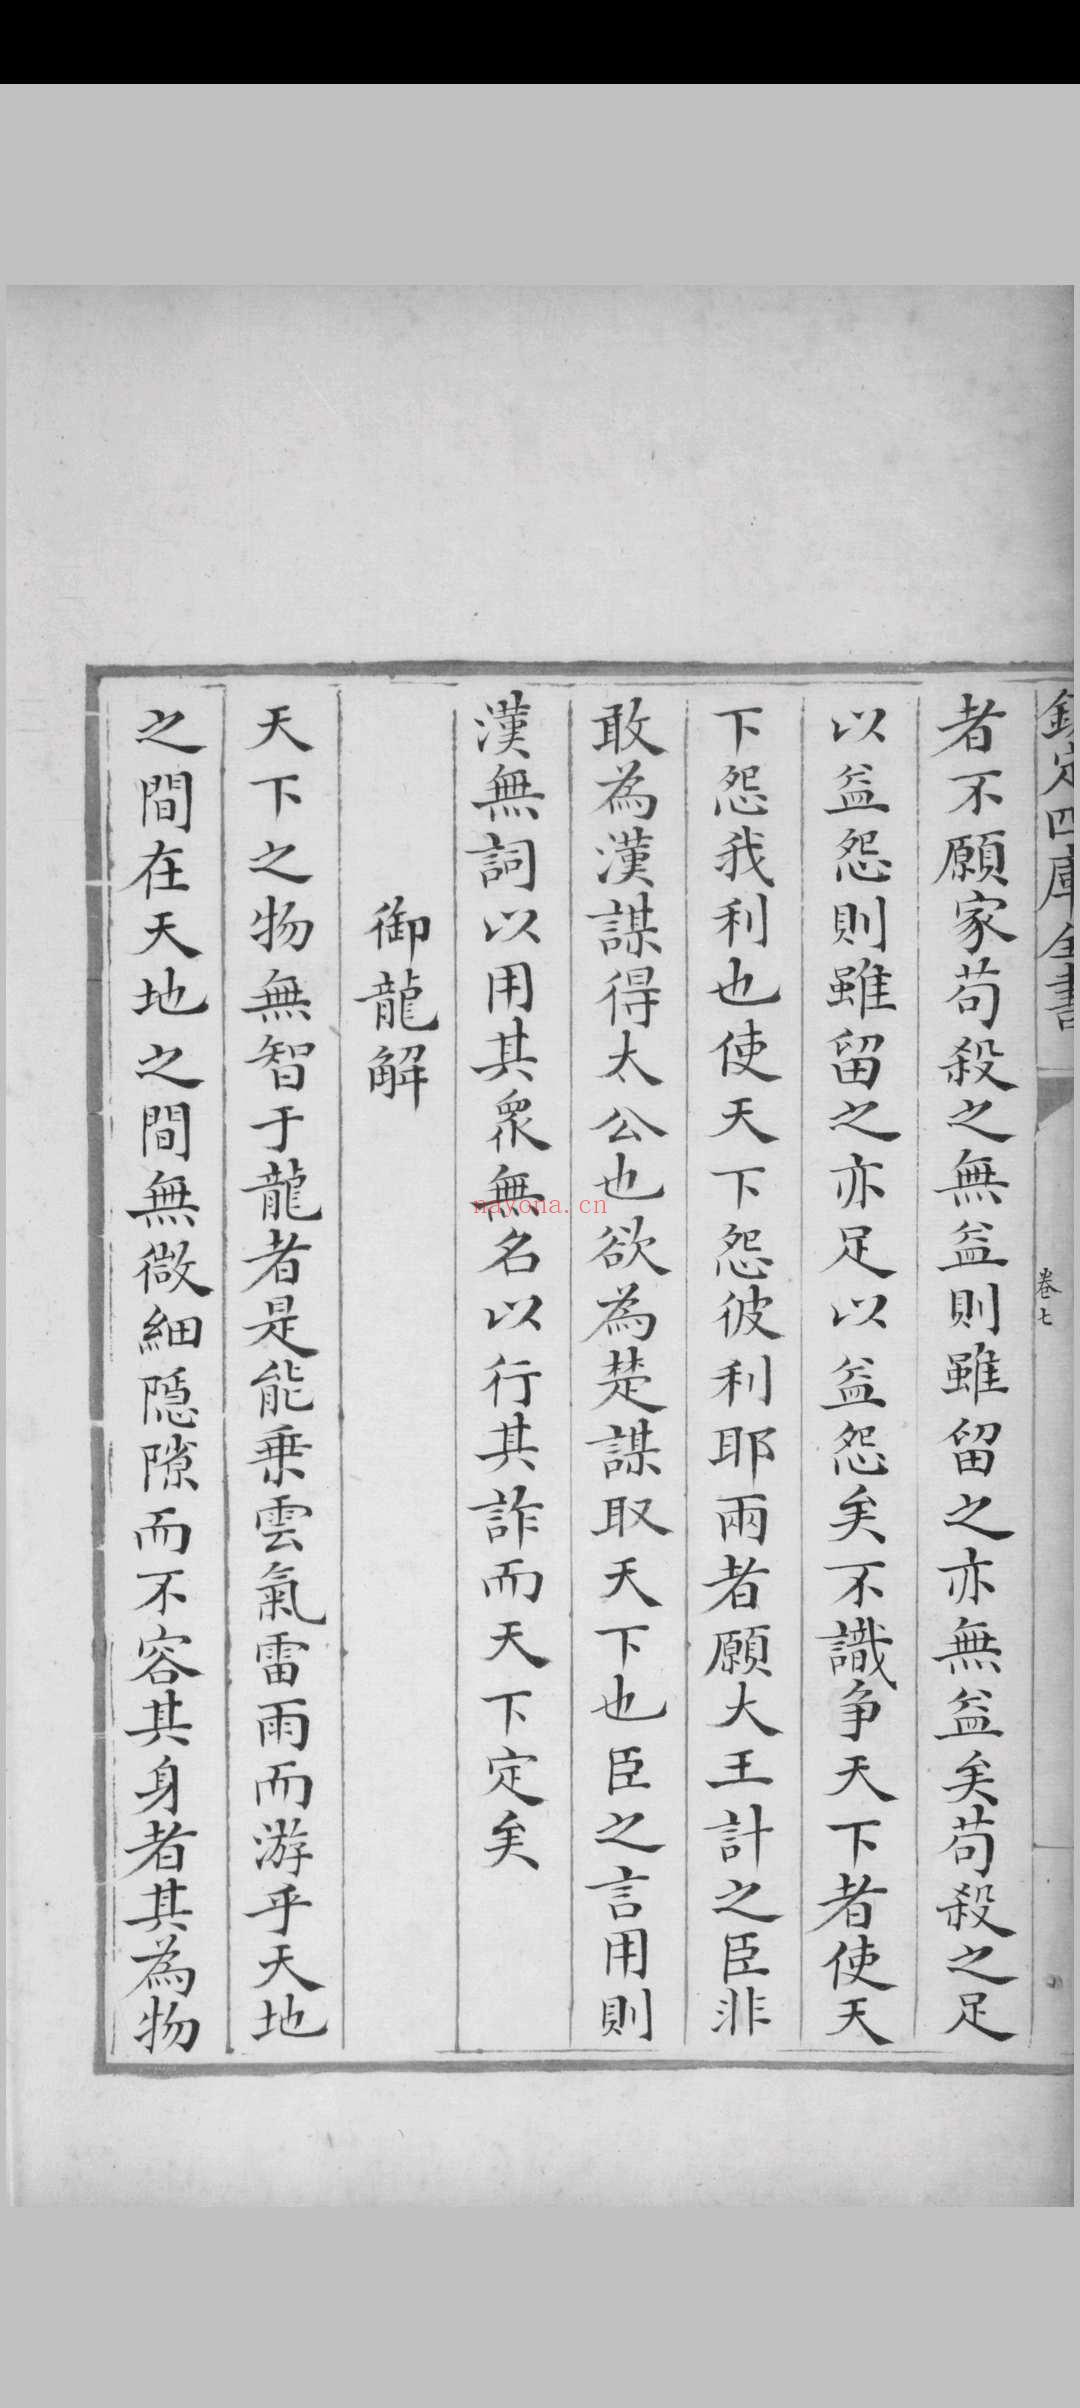 欽定四庫全書
卷七
者不願家苟殺之無益則雖留之亦無益矣苟殺之足
以益怨則雖留之亦足以益怨矣不識争天下者使天
下怨我利也使天下怨彼利耶兩者願大王計之臣非
敢為漢謀得太公也欲為楚謀取天下也臣之言用則
漢無詞以用其衆無名以行其詐而天下定矣
御龍解
天下之物無智于龍者是能乗雲氣雷雨而游乎天地
之間在天地之間無微細隱隙而不容其身者其為物
nayona.cn